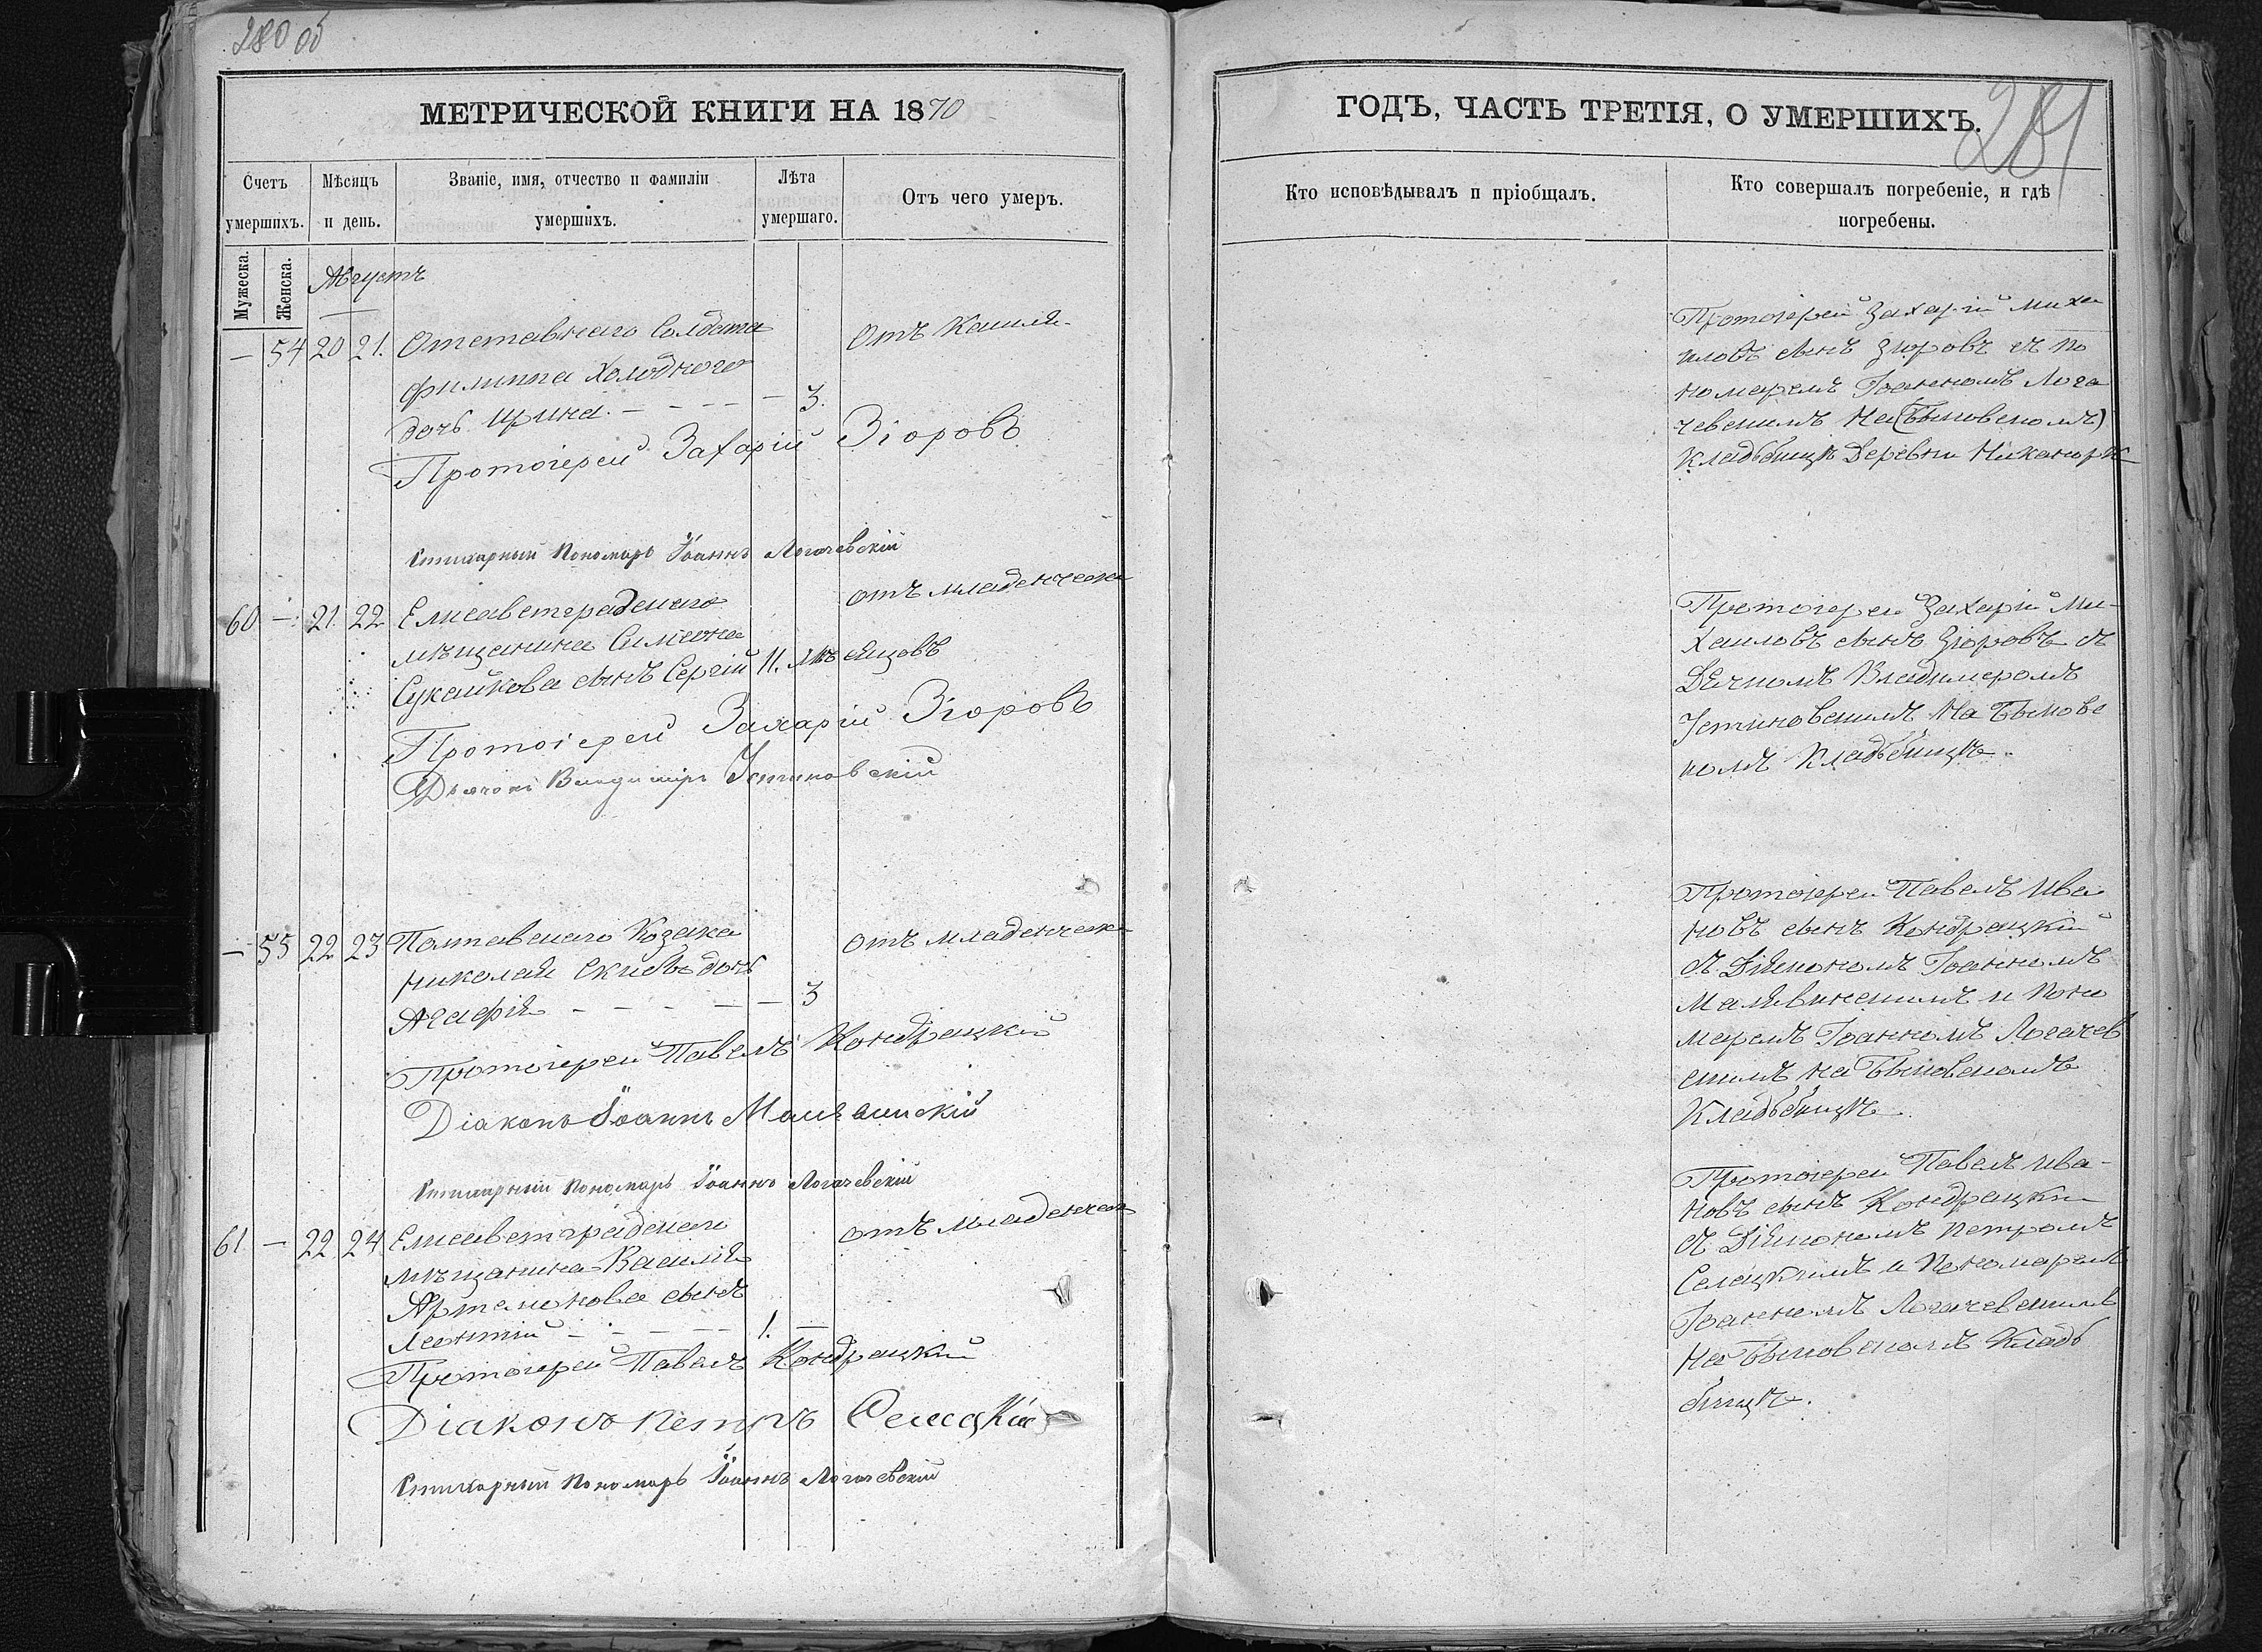 280 об
МЕТРИЧЕСКОЙ КНИГИ НА 1870
Счетъ умершихъ.
Мѣсяцъ и день.
Званіе, имя, отчество и фамиліи
умершихъ.
Лѣта умершаго.
Отъ чего умеръ.
Мужеска.
Женска.
Августъ
— 54 20 21. Отставнаго Солдата Отъ Кашля
Филиппа Холоднаго
дочь Ирина. — — — — 3.
Протоіерей Захарій Зіоровъ
Стихарный Пономарь Іоаннъ Логачевскій
60 — 21. 22 Елисаветградскаго отъ младенческ
мѣщанина Симеона
сынъ Сергій 11. мѣсяцовъ
Протоіерей Захарій Зіоровъ
Дьячокъ Владиміръ Устиновскій
— 55 22 23 Полтавскаго Козака отъ младенческ
Николая дочь
Агафія — — — — — 3
Протоіерей Павелъ Кондрацкій
Діаконъ Іоаннъ Малявинскій
Стихарный Пономарь Іоаннъ Логачевскій
61 — 22 24 Елисаветградскаго отъ младенческ
мѣщанина Василія
Артамонова сынъ
Леонтій — — — — 1. —
Протоіерей Павелъ Кондрацкій
Діаконъ Петръ Селецкій
Стихарный Пономарь Іоаннъ Логачевскій
281
ГОДЪ, ЧАСТЬ ТРЕТІЯ, О УМЕРШИХЪ.
Кто исповѣдывалъ и пріобщалъ.
Кто совершалъ погребеніе, и гдѣ
погребены.
Протоіерей Захарій Миха
иловъ сынъ Зіоровъ съ по
номаремъ Іоанномъ Лога
чевскимъ На (Быковскомъ)
Кладьбищѣ Деревни
Протоіерей Захарій Ми-
хаиловъ сынъ Зіоровъ съ
Дьячкомъ Владимеромъ
Устиновскимъ На Быковс
комъ Кладьбищѣ.
Протоіерей Павелъ Ива
новъ сынъ Кондрацкій
съ Діякономъ Іоанномъ
Малявинскимъ и Поно
маремъ Іоанномъ Логачев
скимъ На Быковскомъ
Кладьбищѣ.
Протоіерей Павелъ Ива-
новъ сынъ Кондрацкій
съ Діякономъ Петромъ
Селецкимъ и Пономаремъ
Іоанномъ Логачевскимъ
На Быковскомъ Кладь
бищѣ.